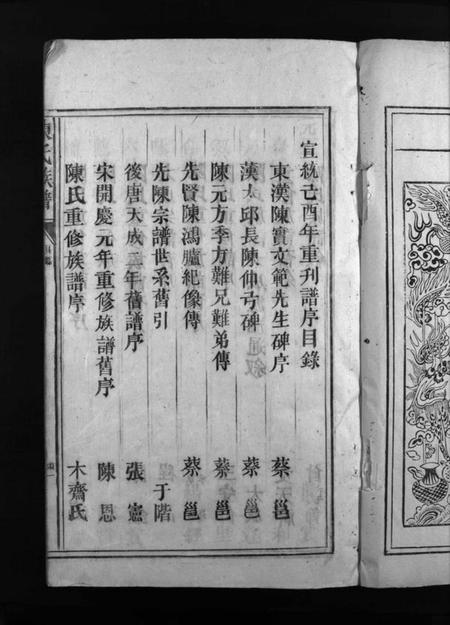 宣統己酉年重刊譜序目錄
東漢陳實文範先生碑序 蔡邕
漢太邱長陳仲弓碑 蔡邕
陳元方季方難兄難弟傳 蔡邕
先賢陳鴻臚紀像傳 蔡邕
先陳宗譜世系舊引 于階
後唐天成三年舊譜序 張憲
宋開慶元年重修族譜舊序 陳恩
陳氏重修族譜序 木齋氏
陳氏族譜